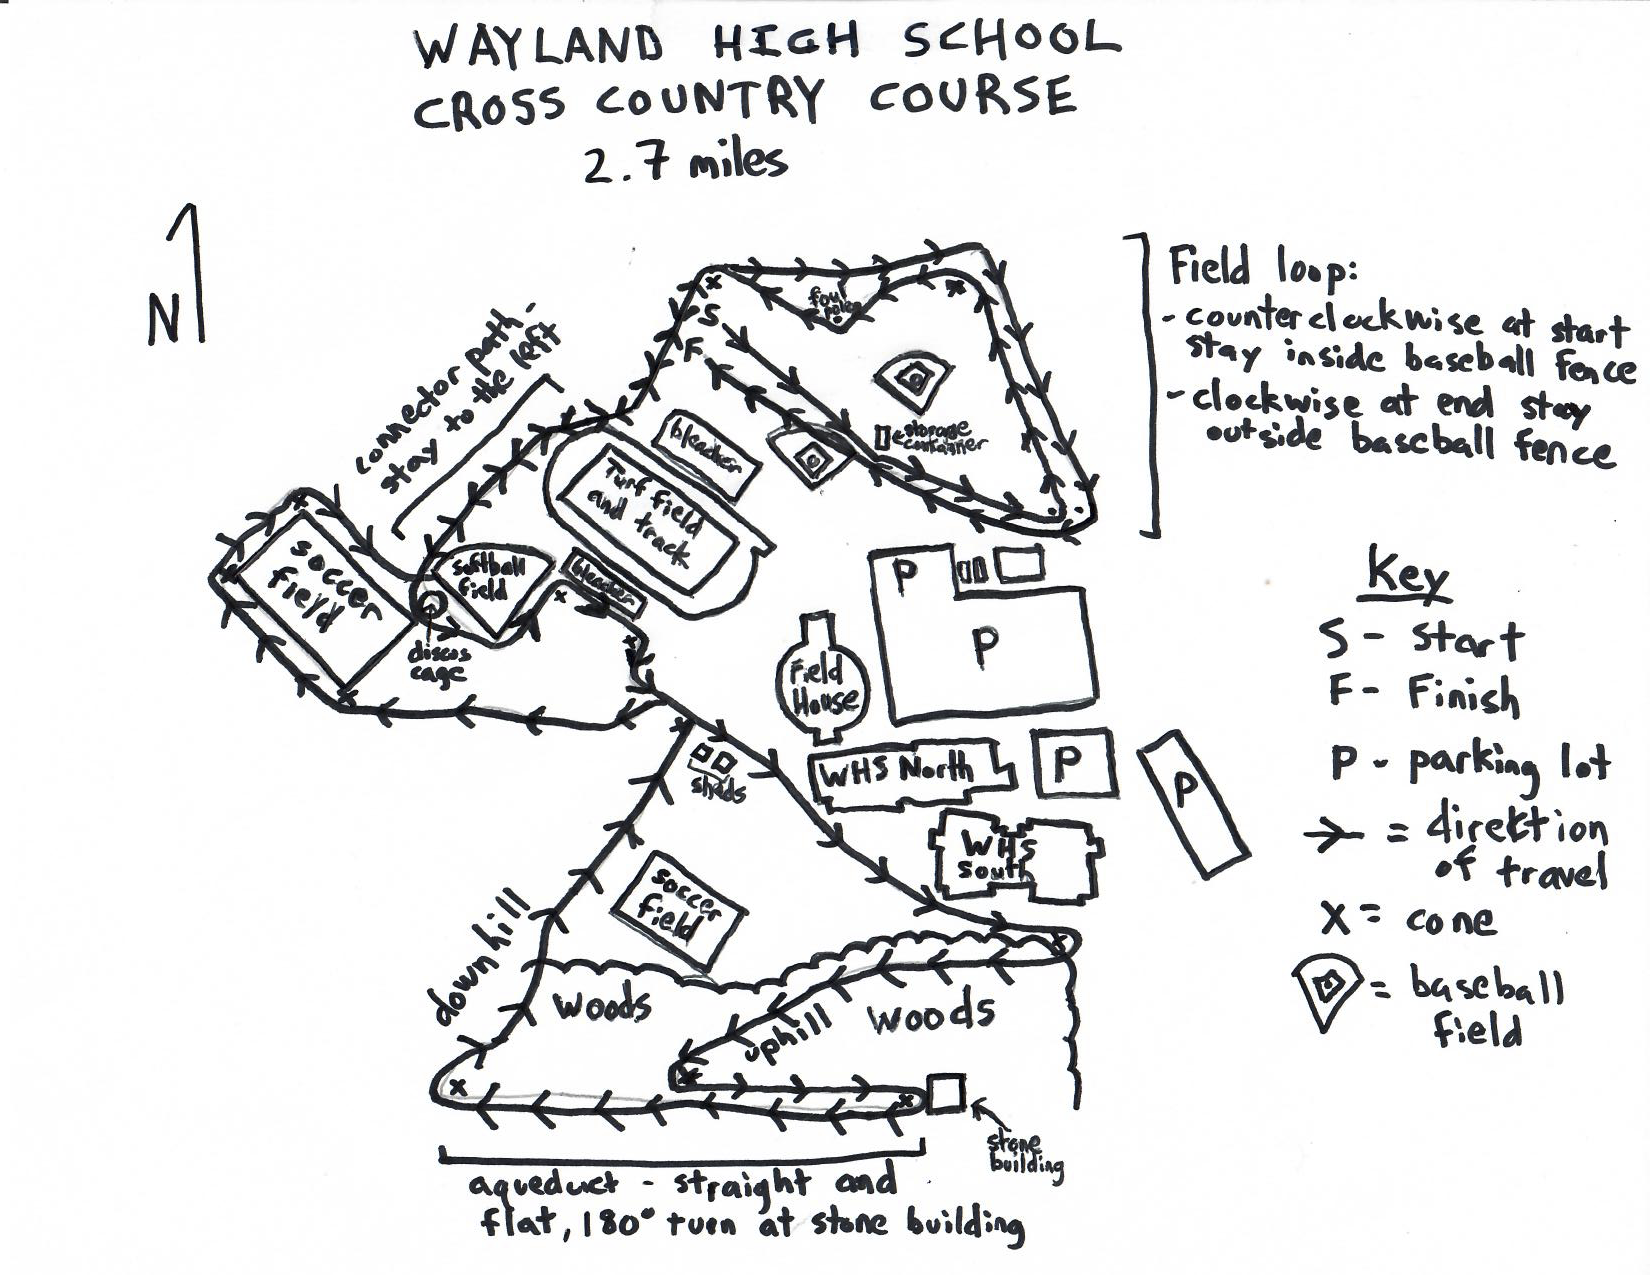 WAYLAND HIGH SCHOOL
CROSS COUNTRY COURSE
2.7 miles
N
connector path -
stay to the left
Field loop:
- counterclockwise at start
stay inside baseball fence
- clockwise at end stay
outside baseball fence
foul
pole
S
F
storage
container
bleacher
Turf field
and track
bleacher
soccer
field
softball
field
discus
cage
P
P
Field
House
WHS North
P
P
WHS
South
sheds
soccer
field
downhill
woods
uphill
woods
stone
building
aqueduct - straight and
flat, 180° turn at stone building
Key
S - Start
F - Finish
P - parking lot
= direktion
of travel
X = cone
= baseball
field